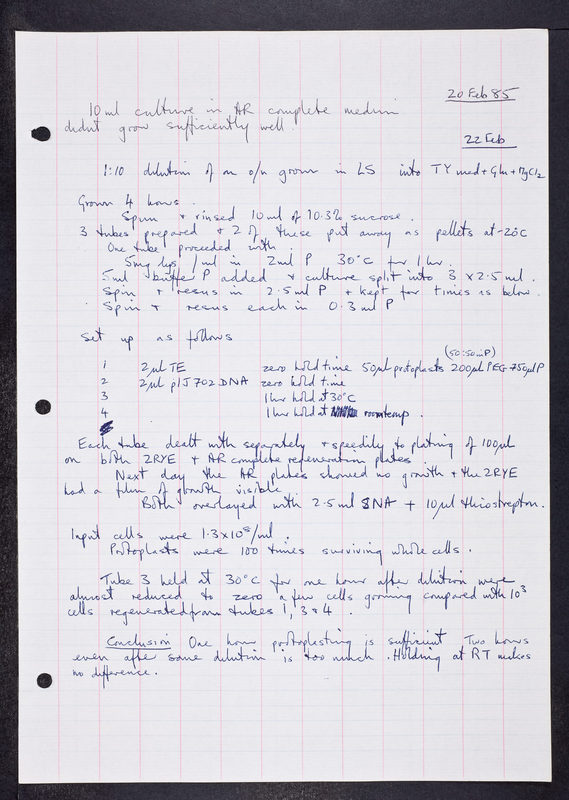 20 Feb 85
10ml culture in AR complete medium
didnt grow sufficiently well.
22 Feb
1:10 dilution of an o/n grown in LS into TY med + Gln + MgCl2
Grown 4 hours.
Spun + rinsed 10ml of 10.3% sucrose.
3 tubes prepared + 2 of these put away as pellets at -20c
One tube proceeded with.
5mg lys/ml in 2ml P 30°C for 1 hr.
5ml buffer P added + culture split into 3 x 2.5ml.
Spin + resus in 2.5ml P + kept for times as below.
Spin + resus each in 0.3ml P
Set up as follows
(50:50 in P)
1 2µl TE zero hold time 50µl protoplasts 200µl PEG 750µl P
2 2µl pIJ702 DNA zero hold time
3 1hr hold at 30°C
4 1hr hold at roomtemp.
Each tube dealt with separately + speedily to plating of 100µl
on both 2RYE + AR complete regeneration plates
Next day the AR plates showed no growth + the 2RYE
had a film of growth visible
Both overlayed with 2.5ml SNA + 10µl thiostrepton.
Input cells were 1.3x10⁸/ml.
Protoplasts were 100 times surviving whole cells.
Tube 3 held at 30°C for one hour after dilution were
almost reduced to zero a few cells growing compared with 10³
cells regenerated from tubes 1, 3 & 4.
Conclusion One hour protoplasting is sufficient Two hours
even after some dilution is too much. Holding at RT makes
no difference.